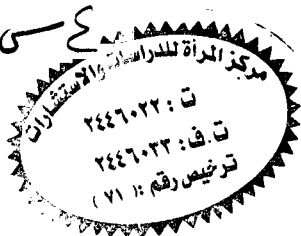 مركز المرأة للدراسات والاستشارات
ت : ٢٤٤٦٠٢٢
ت.ف : ٢٤٤٦٠٣٣
ترخيص رقم : ( ٧١ )